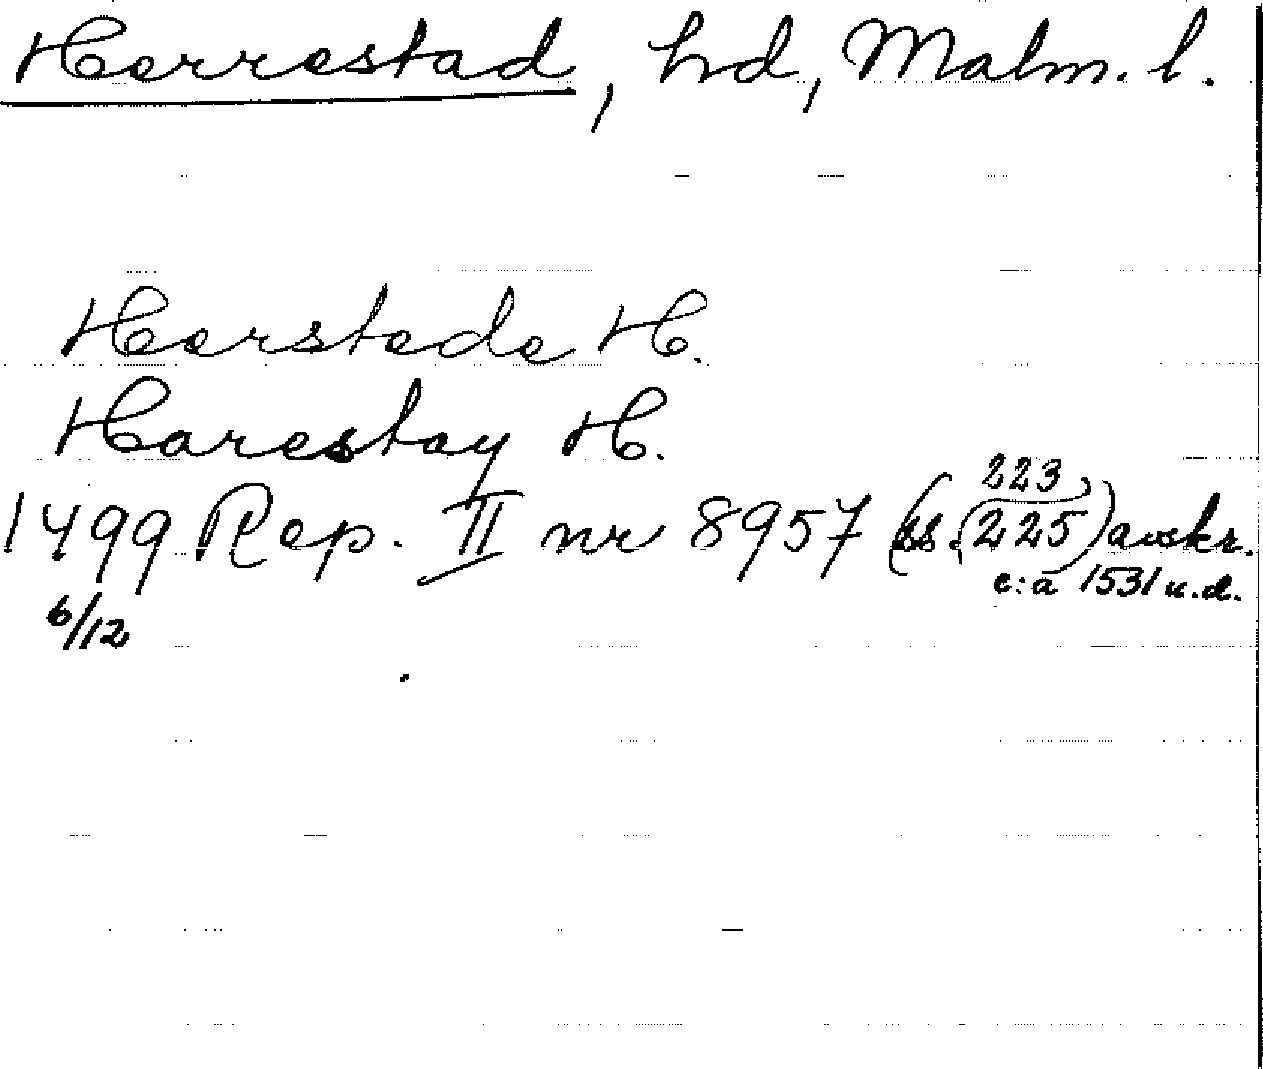 Herrestad, hd, Malm. l.
Herstede H.
Harestay H.
223
1499 Rep. II nr 8957 (ss. 225) avskr.
c:a 1531 u.d.
6/12